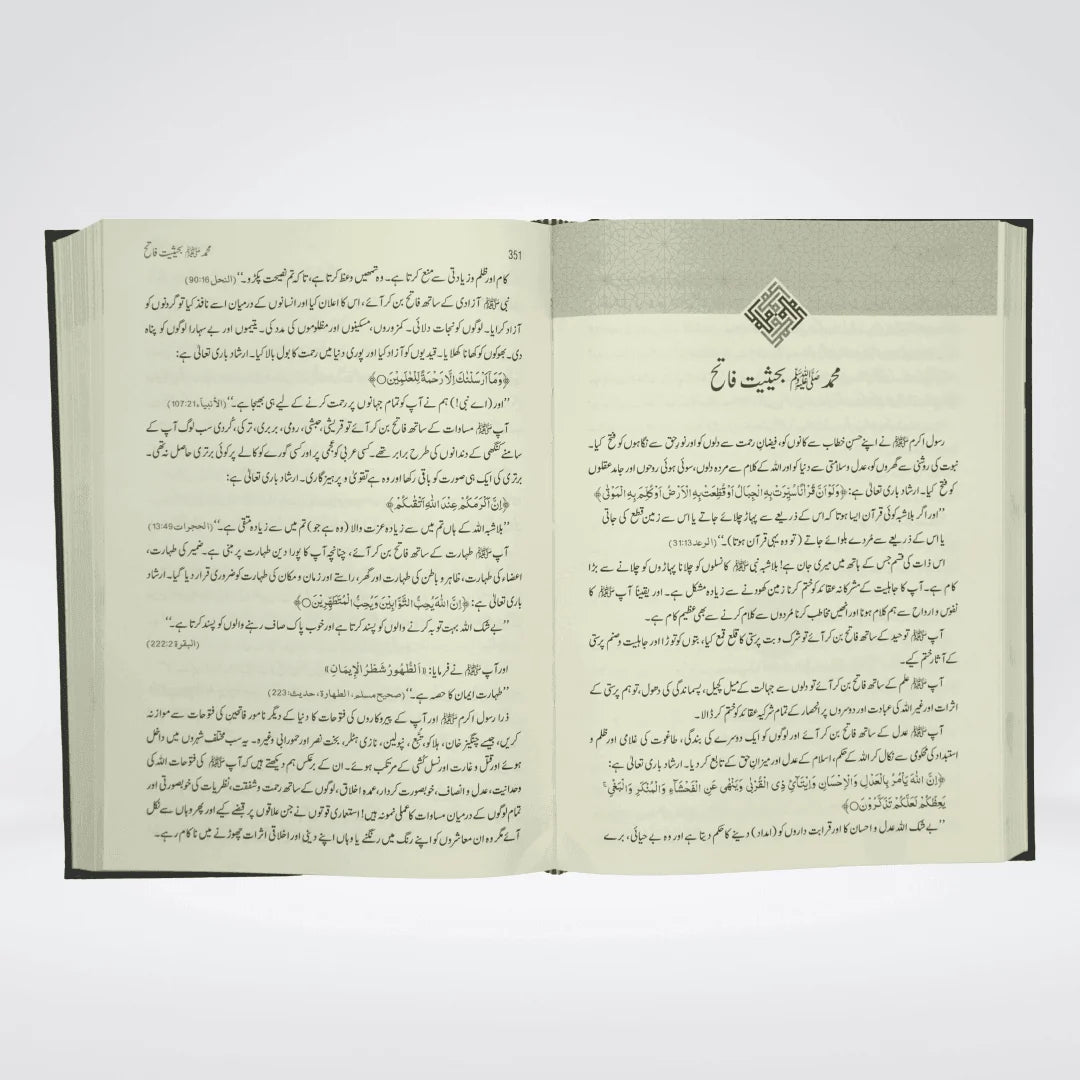 محمد ﷺ بحیثیت فاتح
رسول اکرم ﷺ نے اپنے حسنِ خطاب سے کانوں کو، فیضانِ رحمت سے دلوں کو اور نورِ حق سے نگاہوں کو فتح کیا۔
نبوت کی روشنی سے گھروں کو، عدل وسلامتی سے دنیا کو اور اللہ کے کلام سے مردہ دلوں، سوئی ہوئی روحوں اور جامد عقلوں
کو فتح کیا۔ ارشاد باری تعالیٰ ہے: ﴿وَلَوْ اَنَّ قُرْاٰنًا سُيِّرَتْ بِهِ الْجِبَالُ اَوْ قُطِّعَتْ بِهِ الْاَرْضُ اَوْ كُلِّمَ بِهِ الْمَوْتٰى﴾
’’اور اگر بلاشبہ کوئی قرآن ایسا ہوتا کہ اس کے ذریعے سے پہاڑ چلائے جاتے یا اس سے زمین قطع کی جاتی
یا اس کے ذریعے سے مُردے بلوائے جاتے (تو وہ یہی قرآن ہوتا)۔‘‘ (الرعد 31:13)
اس ذات کی قسم جس کے ہاتھ میں میری جان ہے! بلاشبہ نبی ﷺ کا نسلوں کو چلانا پہاڑوں کو چلانے سے بڑا
کام ہے۔ آپ کا جاہلیت کے مشرکانہ عقائد کو ختم کرنا زمین کھودنے سے زیادہ مشکل ہے۔ اور یقیناً آپ ﷺ کا
نفوس و ارواح سے ہم کلام ہونا اور انھیں مخاطب کرنا مُردوں سے کلام کرنے سے بھی عظیم کام ہے۔
آپ ﷺ توحید کے ساتھ فاتح بن کر آئے تو شرک و بت پرستی کا قلع قمع کیا، بتوں کو توڑا اور جاہلیت و صنم پرستی
کے آثار ختم کیے۔
آپ ﷺ علم کے ساتھ فاتح بن کر آئے تو دلوں سے جہالت کے میل کچیل، پسماندگی کی دھول، توہم پرستی کے
اثرات اور غیر اللہ کی عبادت اور دوسروں پر انحصار کے تمام شرکیہ عقائد کو ختم کر ڈالا۔
آپ ﷺ عدل کے ساتھ فاتح بن کر آئے اور لوگوں کو ایک دوسرے کی بندگی، طاغوت کی غلامی اور ظلم و
استبداد کی محکومی سے نکال کر اللہ کے حکم، اسلام کے عدل اور میزانِ حق کے تابع کر دیا۔ ارشاد باری تعالیٰ ہے:
﴿اِنَّ اللّٰهَ يَاْمُرُ بِالْعَدْلِ وَالْاِحْسَانِ وَاِيْتَآئِ ذِى الْقُرْبٰى وَيَنْهٰى عَنِ الْفَحْشَآءِ وَالْمُنْكَرِ وَالْبَغْىِ ۚ
يَعِظُكُمْ لَعَلَّكُمْ تَذَكَّرُوْنَ○﴾
’’بے شک اللہ عدل و احسان کا اور قرابت داروں کو (امداد) دینے کا حکم دیتا ہے اور وہ بے حیائی، برے
محمد ﷺ بحیثیت فاتح
351
کام اور ظلم و زیادتی سے منع کرتا ہے۔ وہ تمھیں وعظ کرتا ہے، تاکہ تم نصیحت پکڑو۔‘‘ (النحل 90:16)
نبی ﷺ آزادی کے ساتھ فاتح بن کر آئے، اس کا اعلان کیا اور انسانوں کے درمیان اسے نافذ کیا تو گردنوں کو
آزاد کرایا۔ لوگوں کو نجات دلائی۔ کمزوروں، مسکینوں اور مظلوموں کی مدد کی۔ یتیموں اور بے سہارا لوگوں کو پناہ
دی۔ بھوکوں کو کھانا کھلایا۔ قیدیوں کو آزاد کیا اور پوری دنیا میں رحمت کا بول بالا کیا۔ ارشاد باری تعالیٰ ہے:
﴿وَمَآ اَرْسَلْنٰكَ اِلَّا رَحْمَةً لِّلْعٰلَمِيْنَ○﴾
’’اور (اے نبی!) ہم نے آپ کو تمام جہانوں پر رحمت کرنے کے لیے ہی بھیجا ہے۔‘‘ (الأنبیآء 107:21)
آپ ﷺ مساوات کے ساتھ فاتح بن کر آئے تو قریشی، حبشی، رومی، بربری، ترکی، کُردی سب لوگ آپ کے
سامنے کنگھی کے دندانوں کی طرح برابر تھے۔ کسی عربی کو عجمی پر اور کسی گورے کو کالے پر کوئی برتری حاصل نہ تھی۔
برتری کی ایک ہی صورت کو باقی رکھا اور وہ ہے تقویٰ و پرہیزگاری۔ ارشاد باری تعالیٰ ہے:
﴿اِنَّ اَكْرَمَكُمْ عِنْدَ اللّٰهِ اَتْقٰىكُمْ﴾
’’بلاشبہ اللہ کے ہاں تم میں سے زیادہ عزت والا (وہ ہے جو) تم میں سے زیادہ متقی ہے۔‘‘ (الحجرات 13:49)
آپ ﷺ طہارت کے ساتھ فاتح بن کر آئے، چنانچہ آپ کا پورا دین طہارت پر مبنی ہے۔ ضمیر کی طہارت،
اعضاء کی طہارت، ظاہر و باطن کی طہارت اور گھر، راستے اور زمان و مکان کی طہارت کو ضروری قرار دیا گیا۔ ارشاد
باری تعالیٰ ہے: ﴿اِنَّ اللّٰهَ يُحِبُّ التَّوَّابِيْنَ وَيُحِبُّ الْمُتَطَهِّرِيْنَ○﴾
’’بے شک اللہ بہت توبہ کرنے والوں کو پسند کرتا ہے اور خوب پاک صاف رہنے والوں کو پسند کرتا ہے۔‘‘
(البقرة 222:2)
اور آپ ﷺ نے فرمایا: «اَلطُّهُورُ شَطْرُ الْإِيمَانِ»
’’طہارت ایمان کا حصہ ہے۔‘‘ (صحیح مسلم، الطهارة، حدیث: 223)
ذرا رسول اکرم ﷺ اور آپ کے پیروکاروں کی فتوحات کا دنیا کے دیگر نامور فاتحین کی فتوحات سے موازنہ
کریں، جیسے چنگیز خان، ہلاکو، تبع، نپولین، نازی ہٹلر، بخت نصر اور حمورابی وغیرہ۔ یہ سب مختلف شہروں میں داخل
ہوئے اور قتل و غارت اور نسل کشی کے مرتکب ہوئے۔ ان کے برعکس ہم دیکھتے ہیں کہ آپ ﷺ کی فتوحات اللہ کی
وحدانیت، عدل و انصاف، خوبصورت کردار، عمدہ اخلاق، لوگوں کے ساتھ رحمت و شفقت، نظریات کی خوبصورتی اور
تمام لوگوں کے درمیان مساوات کا عملی نمونہ ہیں! استعماری قوتوں نے جن علاقوں پر قبضے کیے اور پھر وہاں سے نکل
آئے مگر وہ ان معاشروں کو اپنے رنگ میں رنگنے یا وہاں اپنے دینی اور اخلاقی اثرات چھوڑنے میں ناکام رہے۔